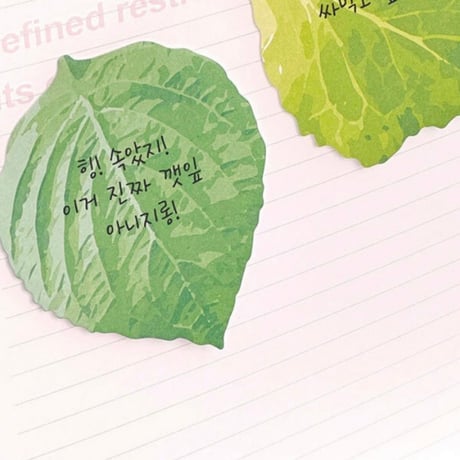 efined rest
ts
싸먹고
헹! 속았지!
이거 진짜 깻잎
아니지롱!